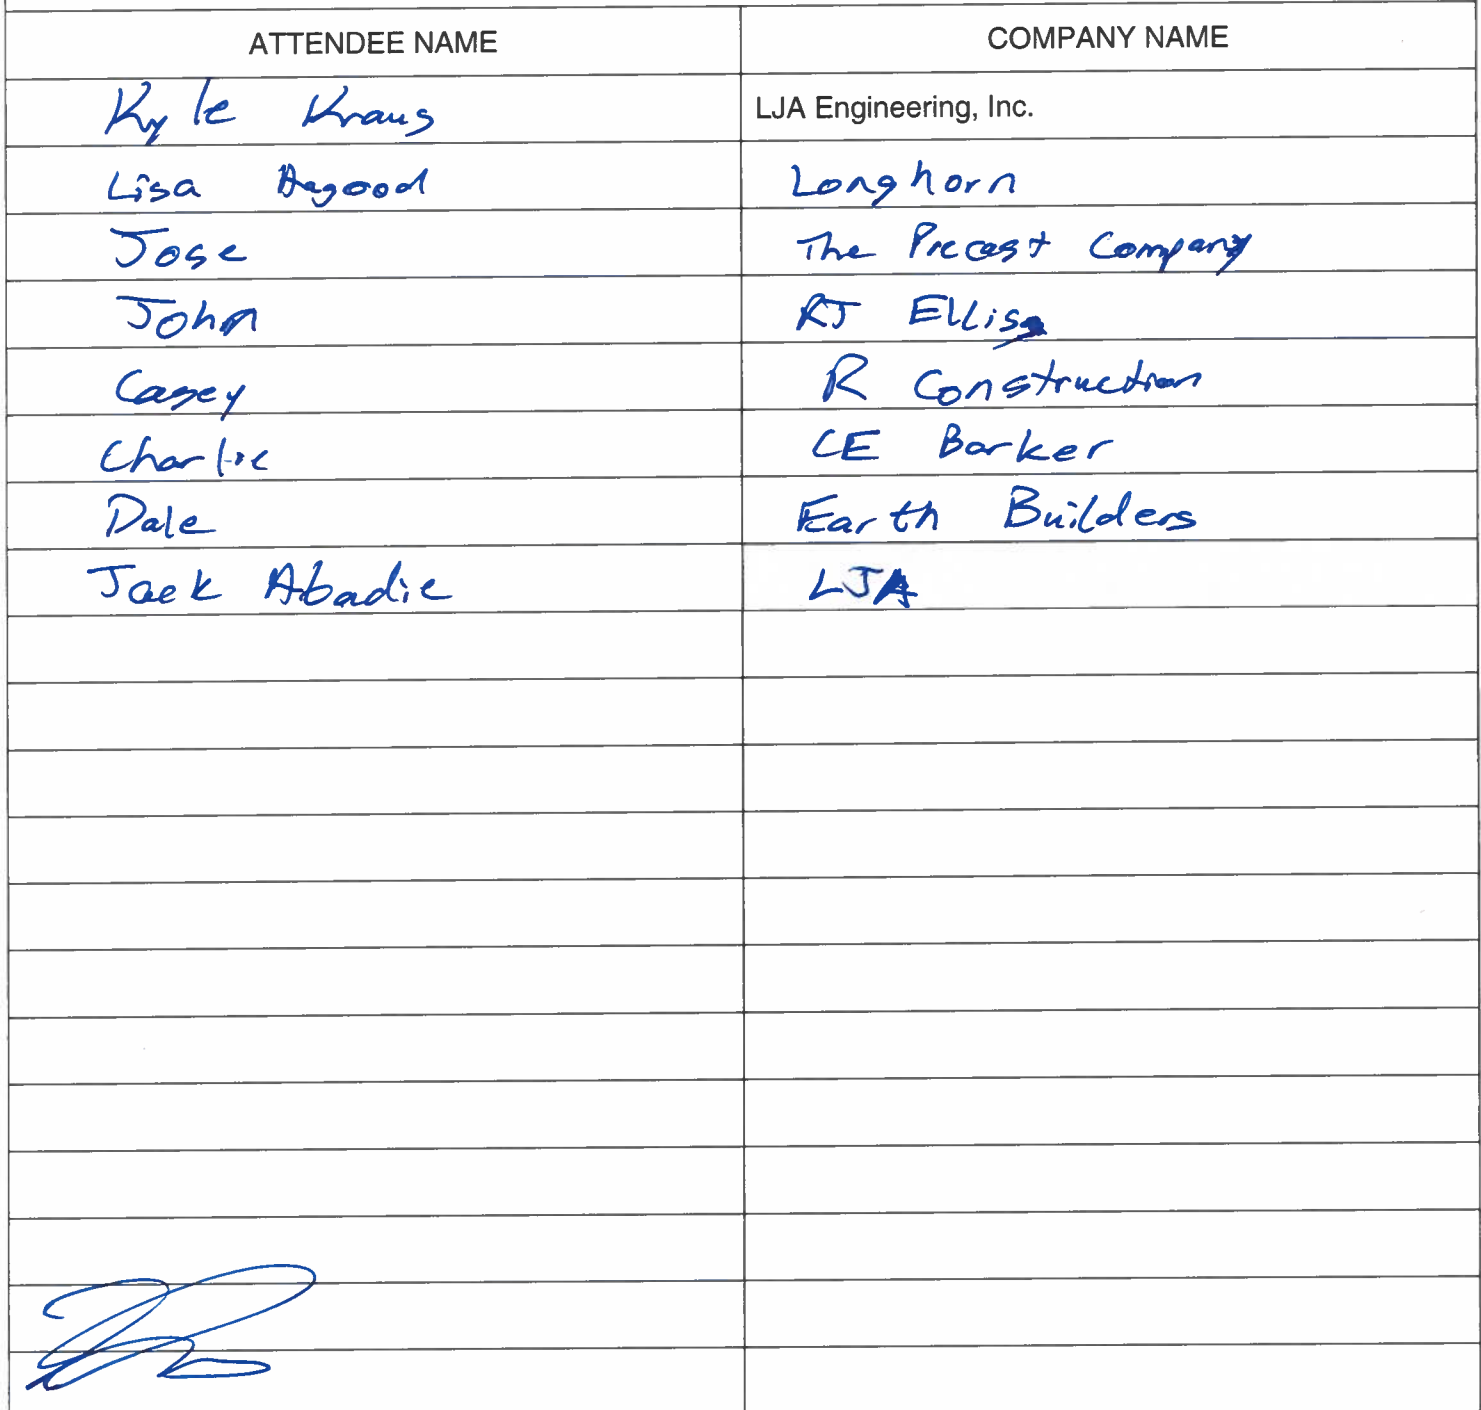 ATTENDEE NAME COMPANY NAME
Kyle Kraus LJA Engineering, Inc.
Lisa Longhorn
Jose The Precast Company
John RJ Ellis
Casey R Construction
Charlie CE Barker
Dale Earth Builders
Jack Abadie LJA